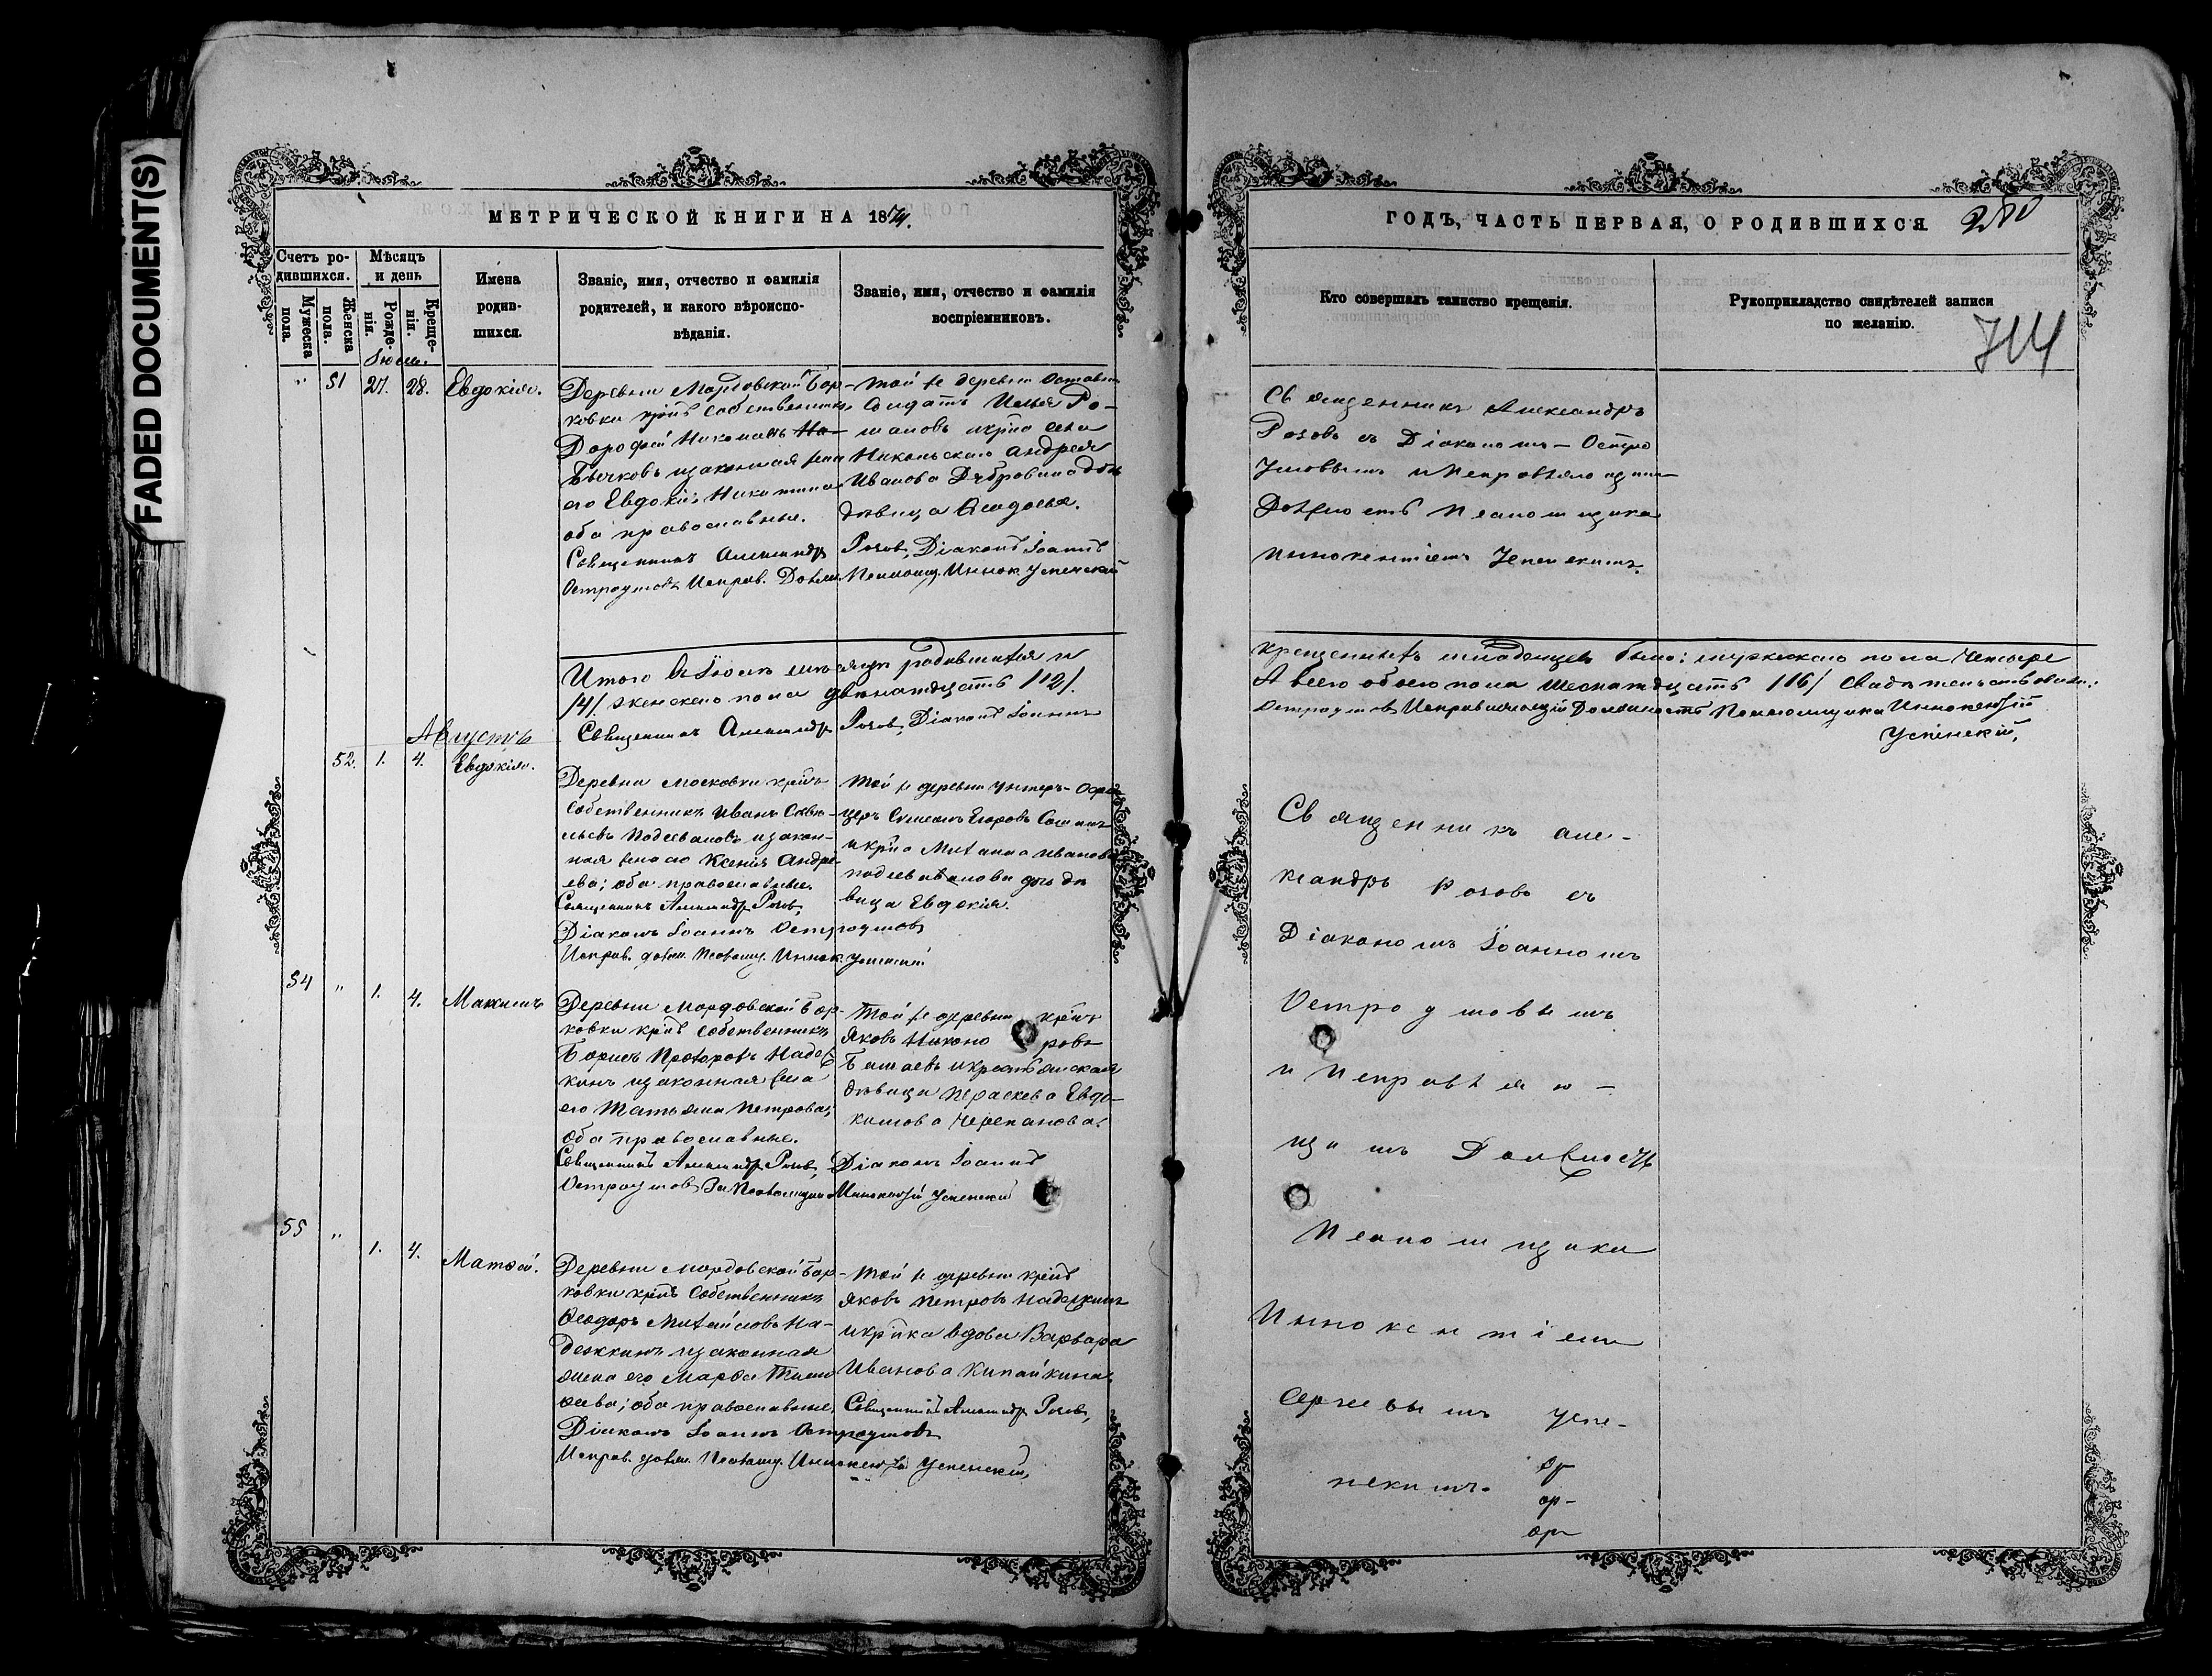 FADED DOCUMENT(S)
МЕТРИЧЕСКОЙ КНИГИ НА 1874.
Счетъ ро-
дившихся.
Мужеска
пола.
Женска
пола.
Мѣсяцъ
и день
Рожде-
нія.
Креще-
нія.
Имена
родив-
шихся.
Званіе, имя, отчество и фамилія
родителей, и какого вѣроиспо-
вѣданія.
Званіе, имя, отчество и фамилія
воспріемниковъ.
" 51 27. 28. Евдокія.
Деревни Мордовской Бор-
ковки собственникъ
Дорофей
Бычковъ и законная жена
его Евдокія Никитина
оба православные.
Священникъ Александр
Остроумовъ Исправ. Долж.
Той же деревни
Солдатъ Илья Ро-
мановъ села
Никольскаго Андрея
Иванова Дубровина дочь
дѣвица Ѳеодосья.
Розовъ, Діаконъ Іоаннъ
Псаломщ. Иннок. Успенский
Итого въ Іюлѣ мѣсяцѣ родившихся и
/4/ женскаго пола двѣнатдцать /12/.
Священникъ Александр Розовъ, Діаконъ Іоаннъ
Августъ
52. 1. 4. Евдокія.
Деревни Московки
собственникъ Иванъ Савe-
льевъ и закон-
ная жена его Ксенія Андре-
ева; оба православные.
Священникъ Александр Розовъ,
Діаконъ Іоаннъ Остроумовъ
Исправ. долж. Псаломщ. Иннок. Успенский
Той же деревни унтеръ-офи-
церъ Егоровъ
Иванова
дочь дѣ-
вица Евдокія.
54 " 1. 4. Максимъ
Деревни Мордовской Бор-
ковки собственникъ
Борисъ Надеж-
кинъ и законная жена
его Татьяна Петрова;
оба православные.
Священникъ Александр Розовъ, Діаконъ Іоаннъ
Остроумовъ За Псаломщика Иннокентій Успенский
Той же деревни
Яковъ Никоноровъ
и крестьянская
дѣвица Параскева Евдо-
кимова Черепанова.
55 " 1. 4. Матѳей.
Деревни Мордовской Бор-
ковки собственникъ
Ѳеодоръ Михайловъ На-
дежкинъ и законная
жена его Марѳа Тимо-
ѳеева; оба православные.
Діаконъ Іоаннъ Остроумовъ
Исправ. долж. Псаломщ. Иннокентій Успенский,
Той же деревни
Яковъ Петровъ Надежкинъ
вдова Варвара
Иванова Кипайкина.
Священникъ Александр Розовъ,
ГОДЪ, ЧАСТЬ ПЕРВАЯ, О РОДИВШИХСЯ
280
Кто совершалъ таинство крещенія.
Рукоприкладство свидѣтелей записи
по желанію.
714
Священникъ Александръ
Розовъ съ Діакономъ Остро
умовымъ и Исправляющимъ
Должность Псаломщика
Иннокентіемъ Успенскимъ.
крещенныхъ младенцевъ было: мужескаго пола четыре
А всего обоего пола шеснатдцать /16/ Свидѣтельствовали:
Остроумовъ Исправляющій Должность Псаломщика Иннокентій
Успенскій,
Священникъ Але-
ксандръ Розовъ съ
Діакономъ Іоанномъ
Остроумовымъ
и Исправляю-
щимъ Должность
Псаломщика
Иннокентіемъ
Сергевымъ Успе-
нскимъ.